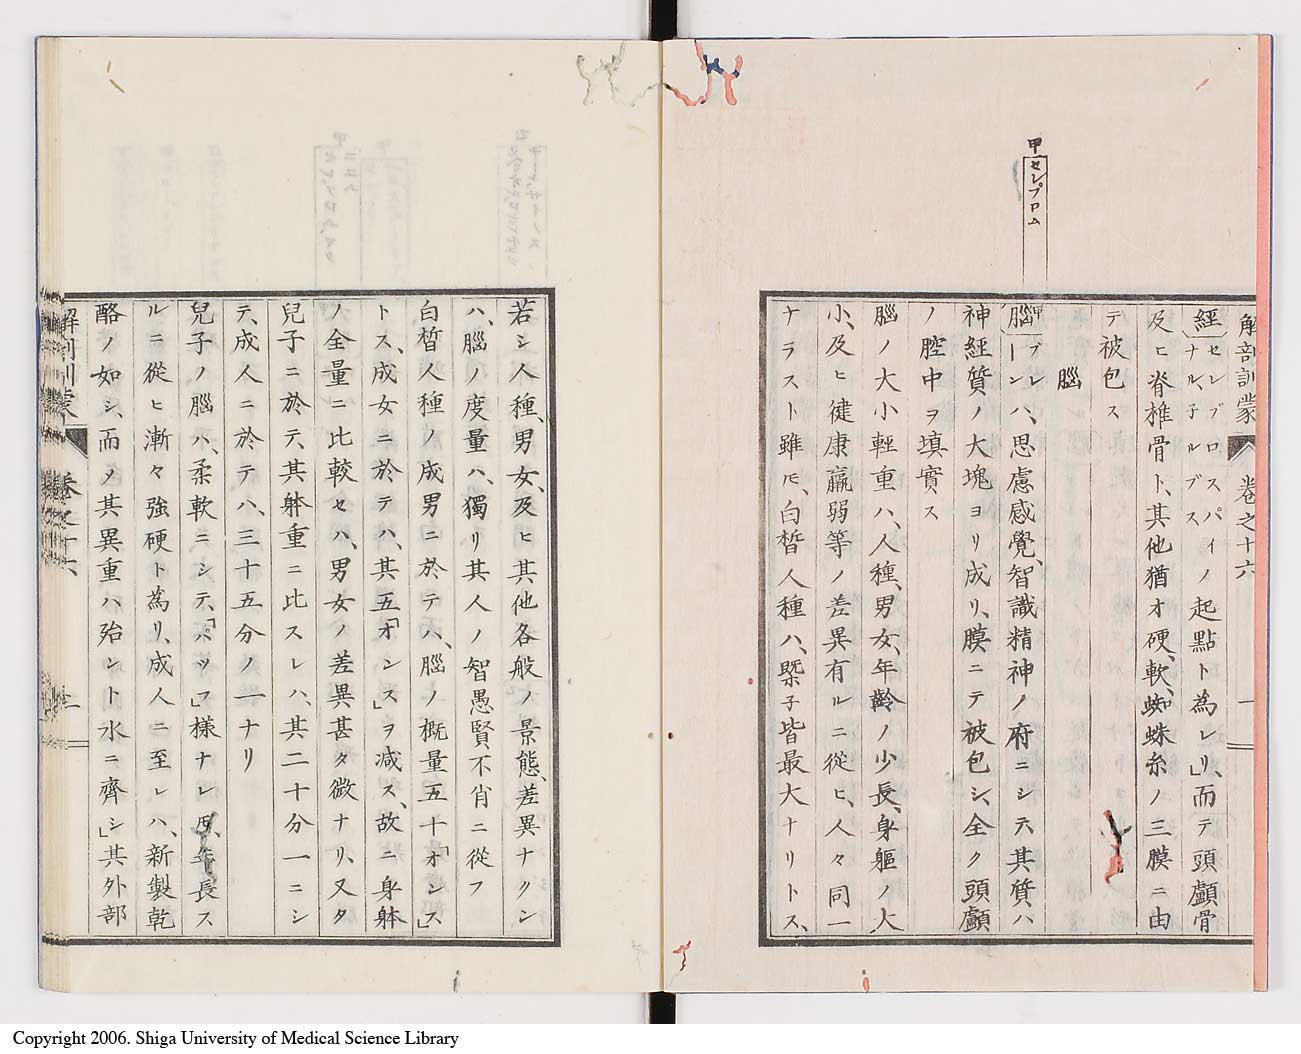 甲
セレプロム
解剖訓蒙 卷之十六 一
經セレブロスパイノ起點ト為レリ、」而テ頭顱骨
ナル、子ルブス
及ヒ脊椎骨ト、其他猶オ硬、軟、蜘蛛糸ノ三膜ニ由
テ被包ス
腦
腦甲ブレーンハ、思慮感覺、智識精神ノ府ニシテ其質ハ
神經質ノ大塊ヨリ成リ、膜ニテ被包シ、全ク頭顱
ノ腔中ヲ填實ス
腦ノ大小輕重ハ、人種、男女、年齡ノ少長、身軀ノ大
小、及ヒ健康羸弱等ノ差異有ルニ從ヒ、人々同一
ナラスト雖𪜈、白皙人種ハ、槩子皆最大ナリトス、
若シ人種、男女、及ヒ其他各般ノ景態、差異ナクン
ハ、腦ノ度量ハ、獨リ其人ノ智愚賢不肖ニ從フ
白皙人種ノ成男ニ於テハ、腦ノ概量五十「オンス」
トス、成女ニ於テハ、其五「オンス」ヲ減ス、故ニ身躰
ノ全量ニ比較セハ、男女ノ差異甚タ微ナリ、又タ
兒子ニ於テ、其躰重ニ比スレハ、其二十分一ニシ
テ、成人ニ於テハ、三十五分ノ一ナリ
兒子ノ腦ハ、柔軟ニシテ、「パツフ」樣ナレ𪜈、年長ス
ルニ從ヒ漸々強硬ト為リ、成人ニ至レハ、新製乾
酪ノ如シ、而メ其異重ハ殆ント水ニ齊シ」其外部
解剖訓蒙 卷之十六
Copyright 2006. Shiga University of Medical Science Library